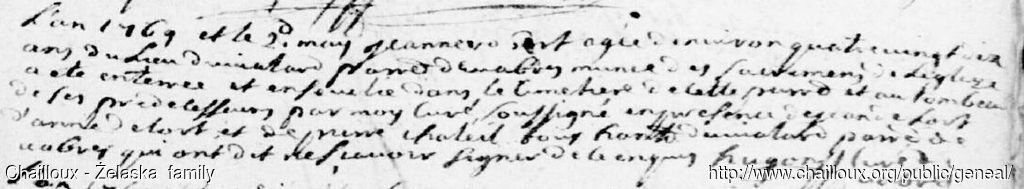 L'an 1769 et le 2d may jeanne agée d'environ quatre vingt dix
ans du lieu d paroisse de vabres munie des sacremens de l'eglize
a eté enterrée et ensevelie dans le cimetiere de cette par. et au tombeau
de ses predecesseurs par moy curé soussigné en presence de
d'anne delort et de pierre chateil tous d paroisse de
vabres qui ont dit ne scavoir signer de ce enquis hugon curé
Chailloux - Żelaska family
http://www.chailloux.org/public/geneal/